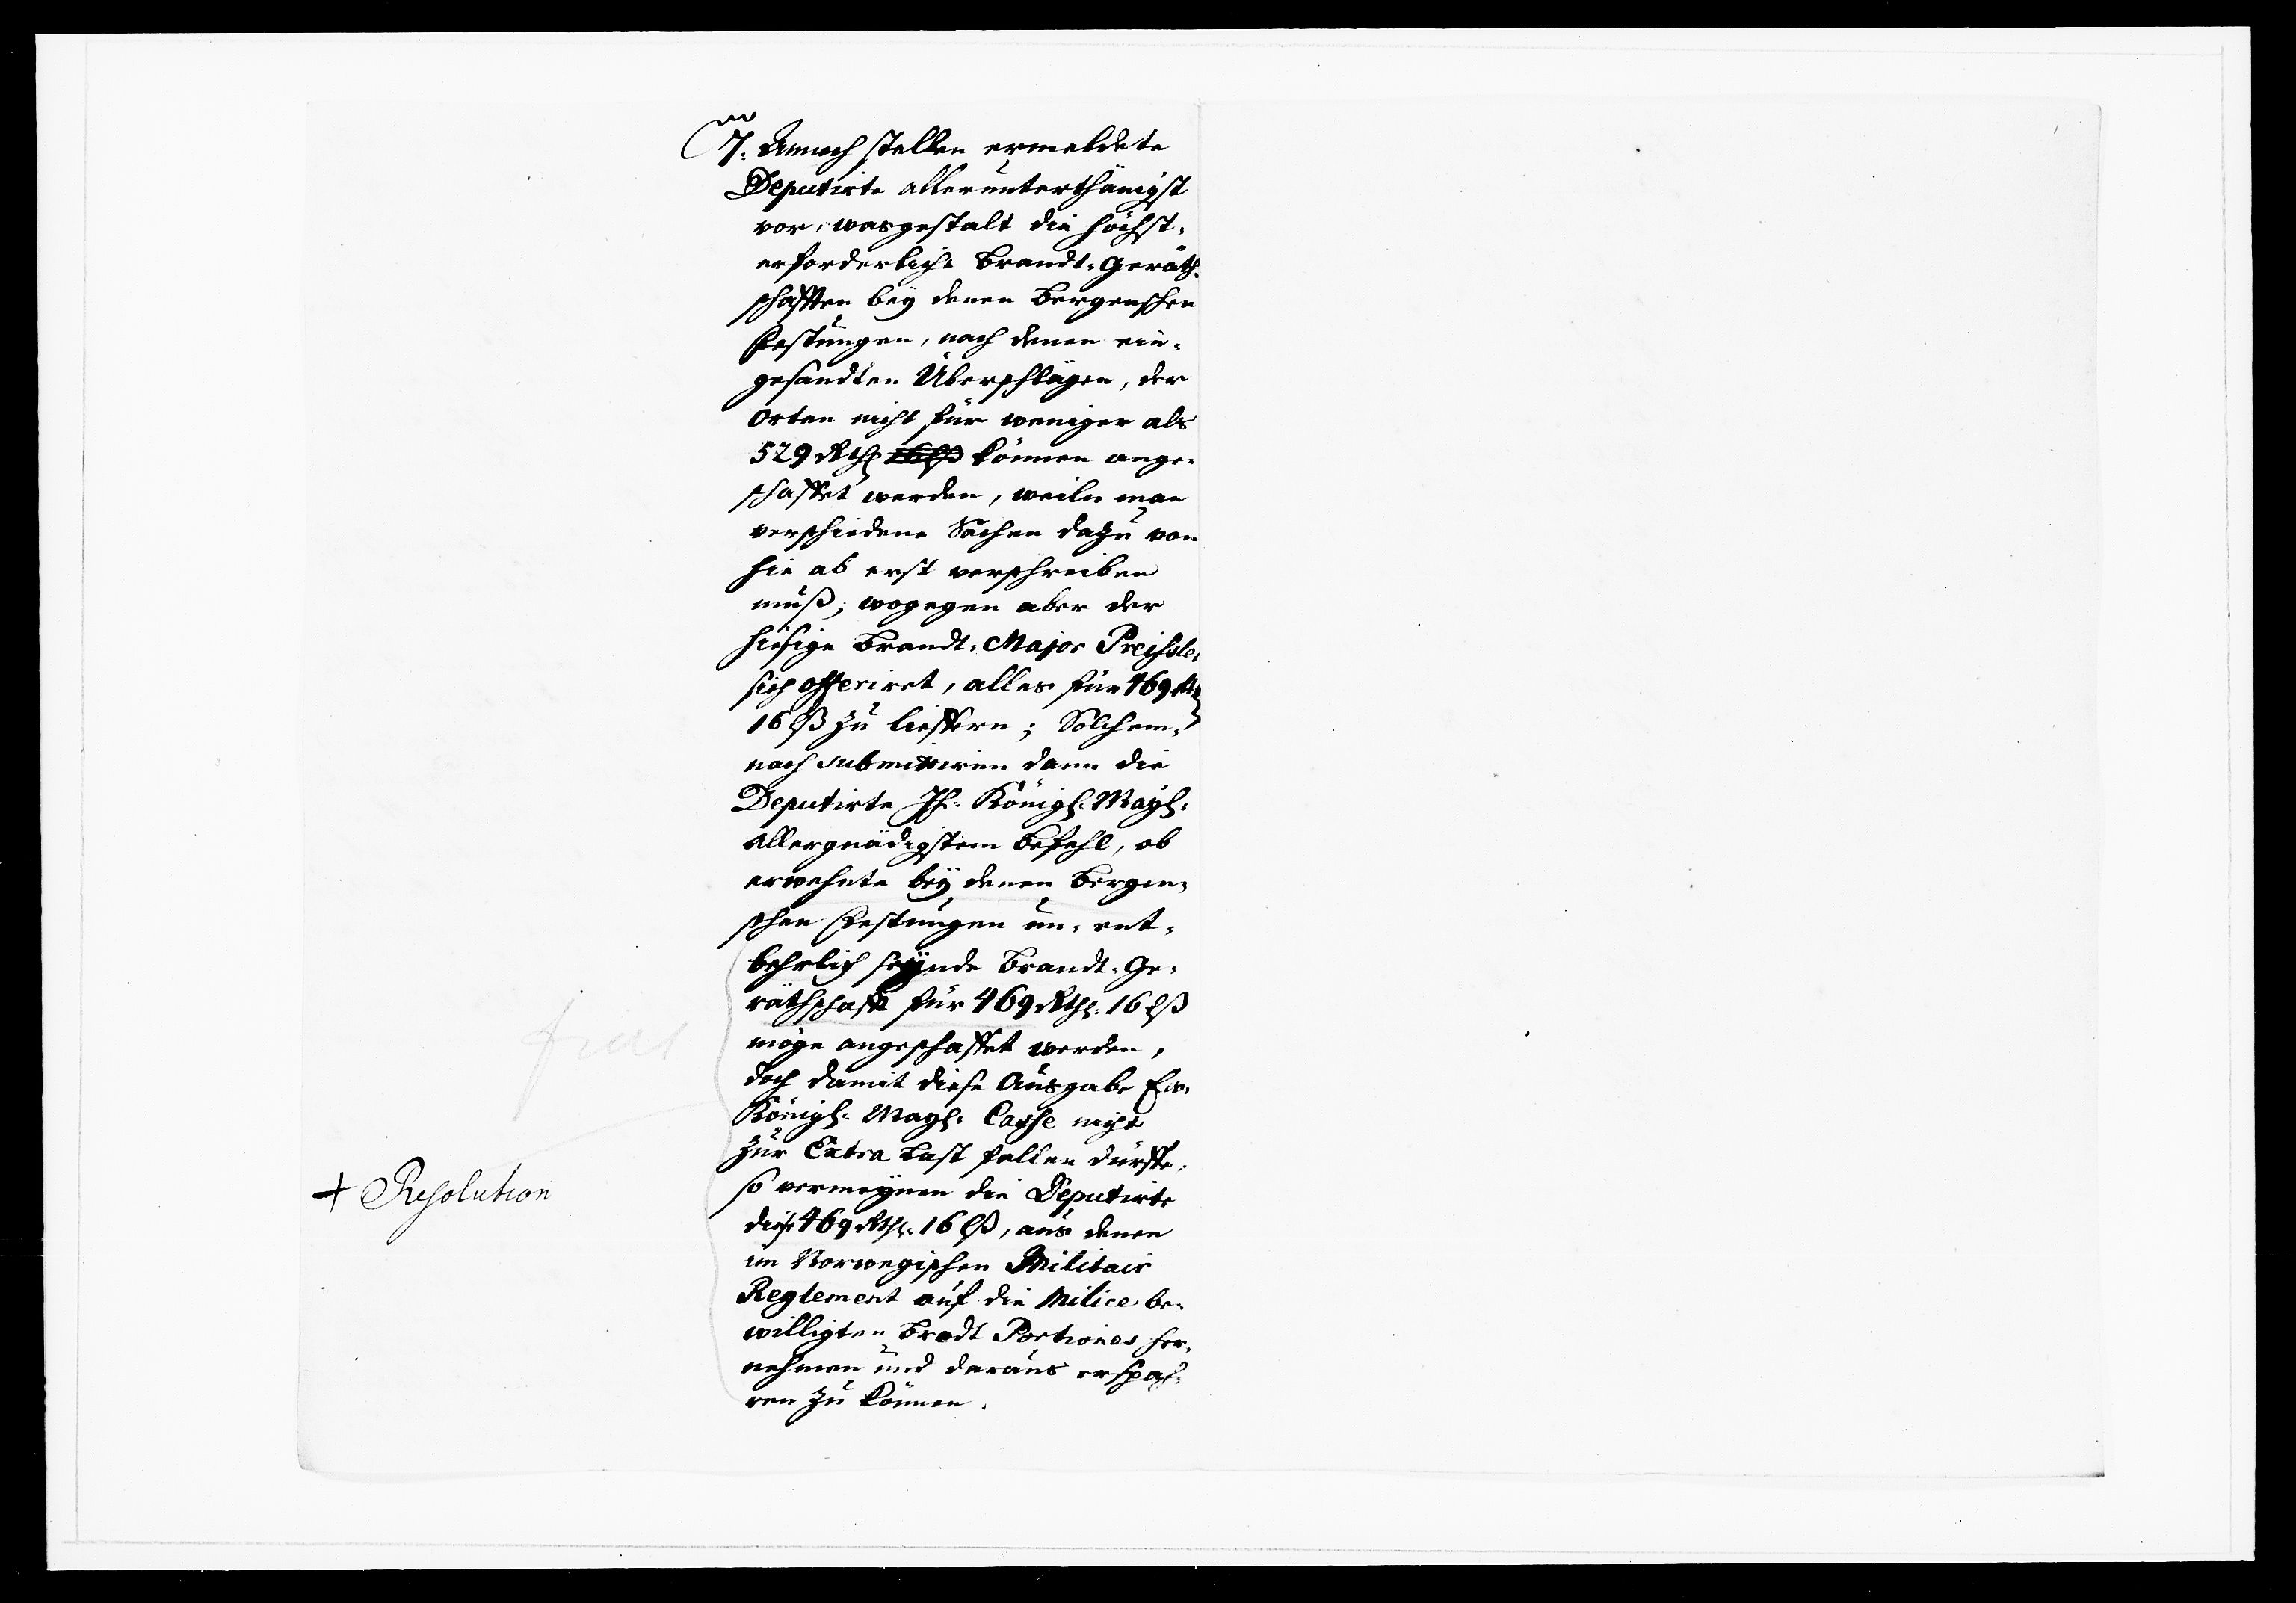 7. Annoch stellen ermeldete
Deputirte allerunterthänigst
vor, wasgestalt die höchst-
erforderliche Brandt-Geräth-
schafften bey denen Bergenschen
Festungen, nach denen ein-
gesandten Überschlägen, der
Orten nicht für weniger als
529 Rthl 16 lß können ange-
schaffet werden, weiln man
verschiedene Sachen dazu von
hie ab erst verschreiben
muß; wogegen aber der
hiesige Brandt-Major Preissler
sich offeriret, alles für 469 Rthl
16 lß zu lieffern; Solchem-
nach submittiren dann die
Deputirte Ih: Königl: Mayt:
allergnädigstem Befehl, ob
erwehnte bey denen Bergen-
schen Festungen un-ent-
behrlich seynde Brandt-Ge-
räthschafft für 469 Rthl: 16 lß
möge angeschaffet werden,
doch damit diese Ausgabe Ew.
Königl: Mayt: Casse nicht
zur Extra Last fallen dürffe,
so vermeynen die Deputirte
diese 469 Rthl: 16 lß, aus denen
im Norwegischen Militair
Reglement auf die Milice be-
willigten Brodt Portiones her-
nehmen und daraus erspah-
ren zu können.
fiat
+ Resolution